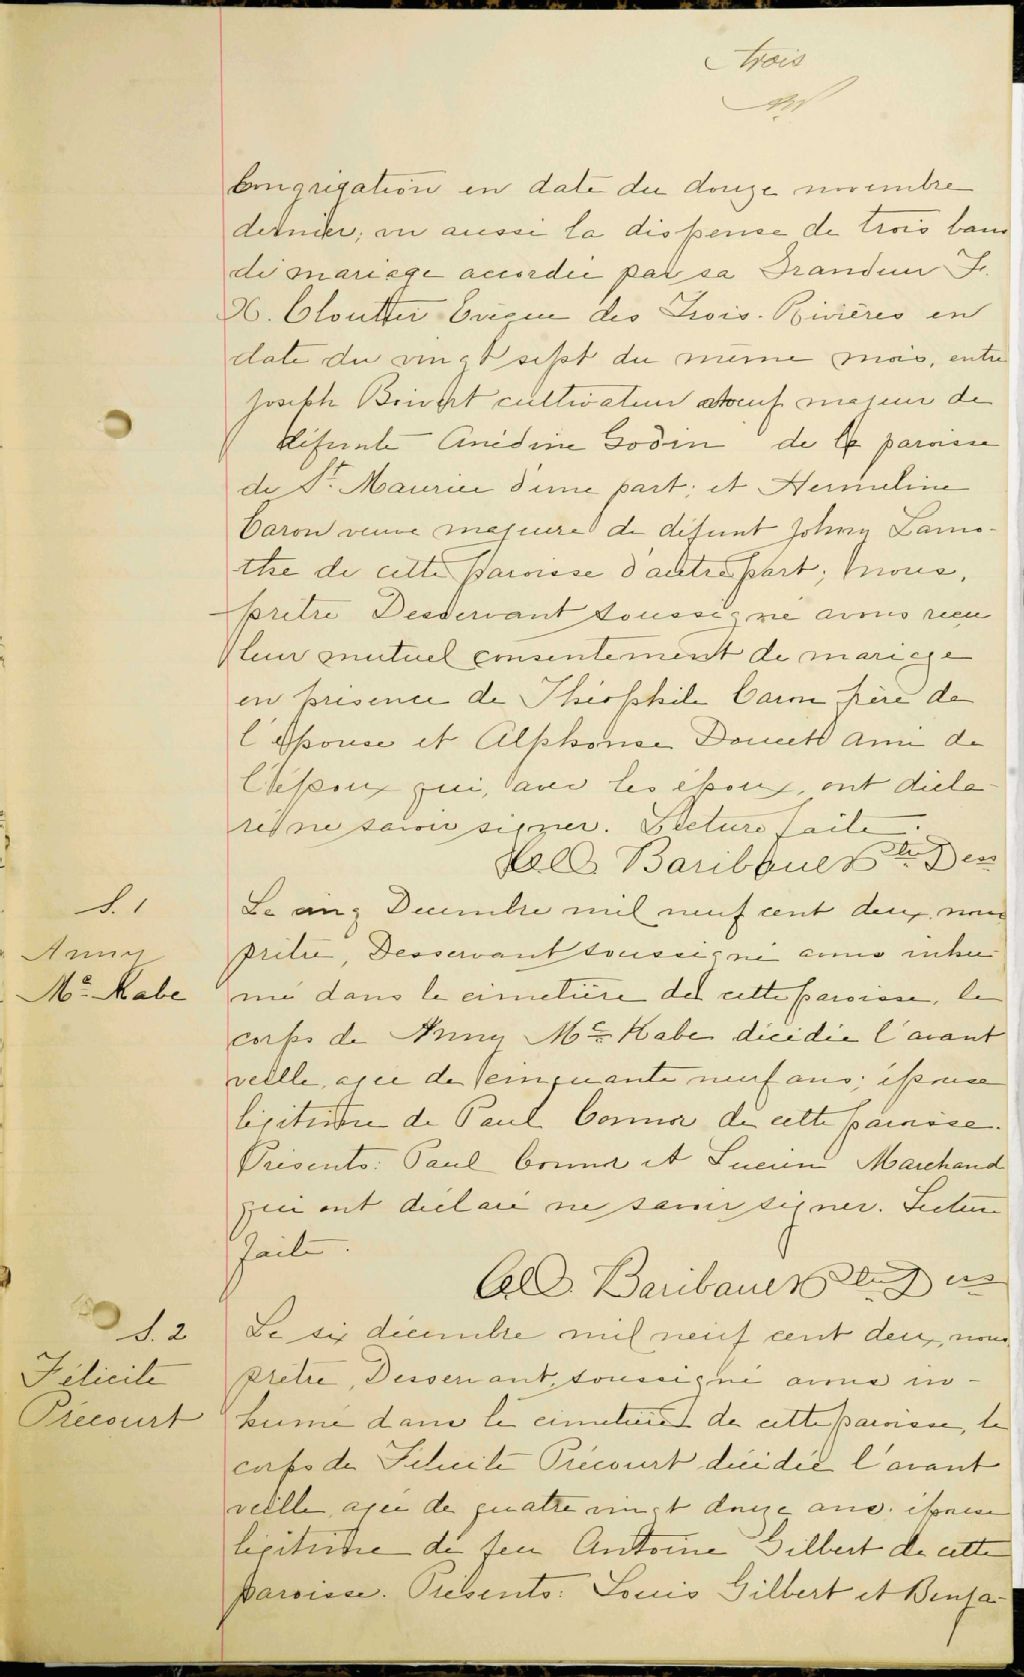 trois
Congrégation en date du douze novembre
dernier; vu aussi la dispense de trois bans
de mariage accordée par sa Grandeur F.
X. Cloutier Evêque des Trois-Rivières en
date du vingt sept du même mois, entre
Joseph Boivert cultivateur veuf majeur de
défunte Anédine Godin de la paroisse
de St. Maurice d'une part; et Hermeline
Caron veuve majeure de défunt Johny Lamo-
the de cette paroisse d'autre part; nous,
prêtre Desservant soussigné avons reçu
leur mutuel consentement de mariage
en présence de Théophile Caron frère de
l'épouse et Alphonse Doucet ami de
l'époux qui, avec les époux, ont décla-
ré ne savoir signer. Lecture faite.
Baribault Ptre Dess
S. 1
Anny
Mc Kabe
Le cinq Decembre mil neuf cent deux, nous
prêtre, Desservant soussigné avons inhu-
mé dans le cimetière de cette paroisse, le
corps de Anny Mc Kabe décédée l'avant
veille, agée de cinquante neuf ans; épouse
légitime de Paul Connor de cette paroisse.
Présents: Paul Connor et Lucien Marchand
qui ont déclaré ne savoir signer. Lecture
faite.
Baribault Ptre Dess
S. 2
Félicite
Précourt
Le six décembre mil neuf cent deux, nous
prêtre, Desservant, soussigné avons in-
humé dans le cimetière de cette paroisse, le
corps de Félicité Précourt décédée l'avant
veille, agée de quatre vingt douze ans, épouse
légitime de feu Antoine Gilbert de cette
paroisse. Présents: Louis Gilbert et Benja-